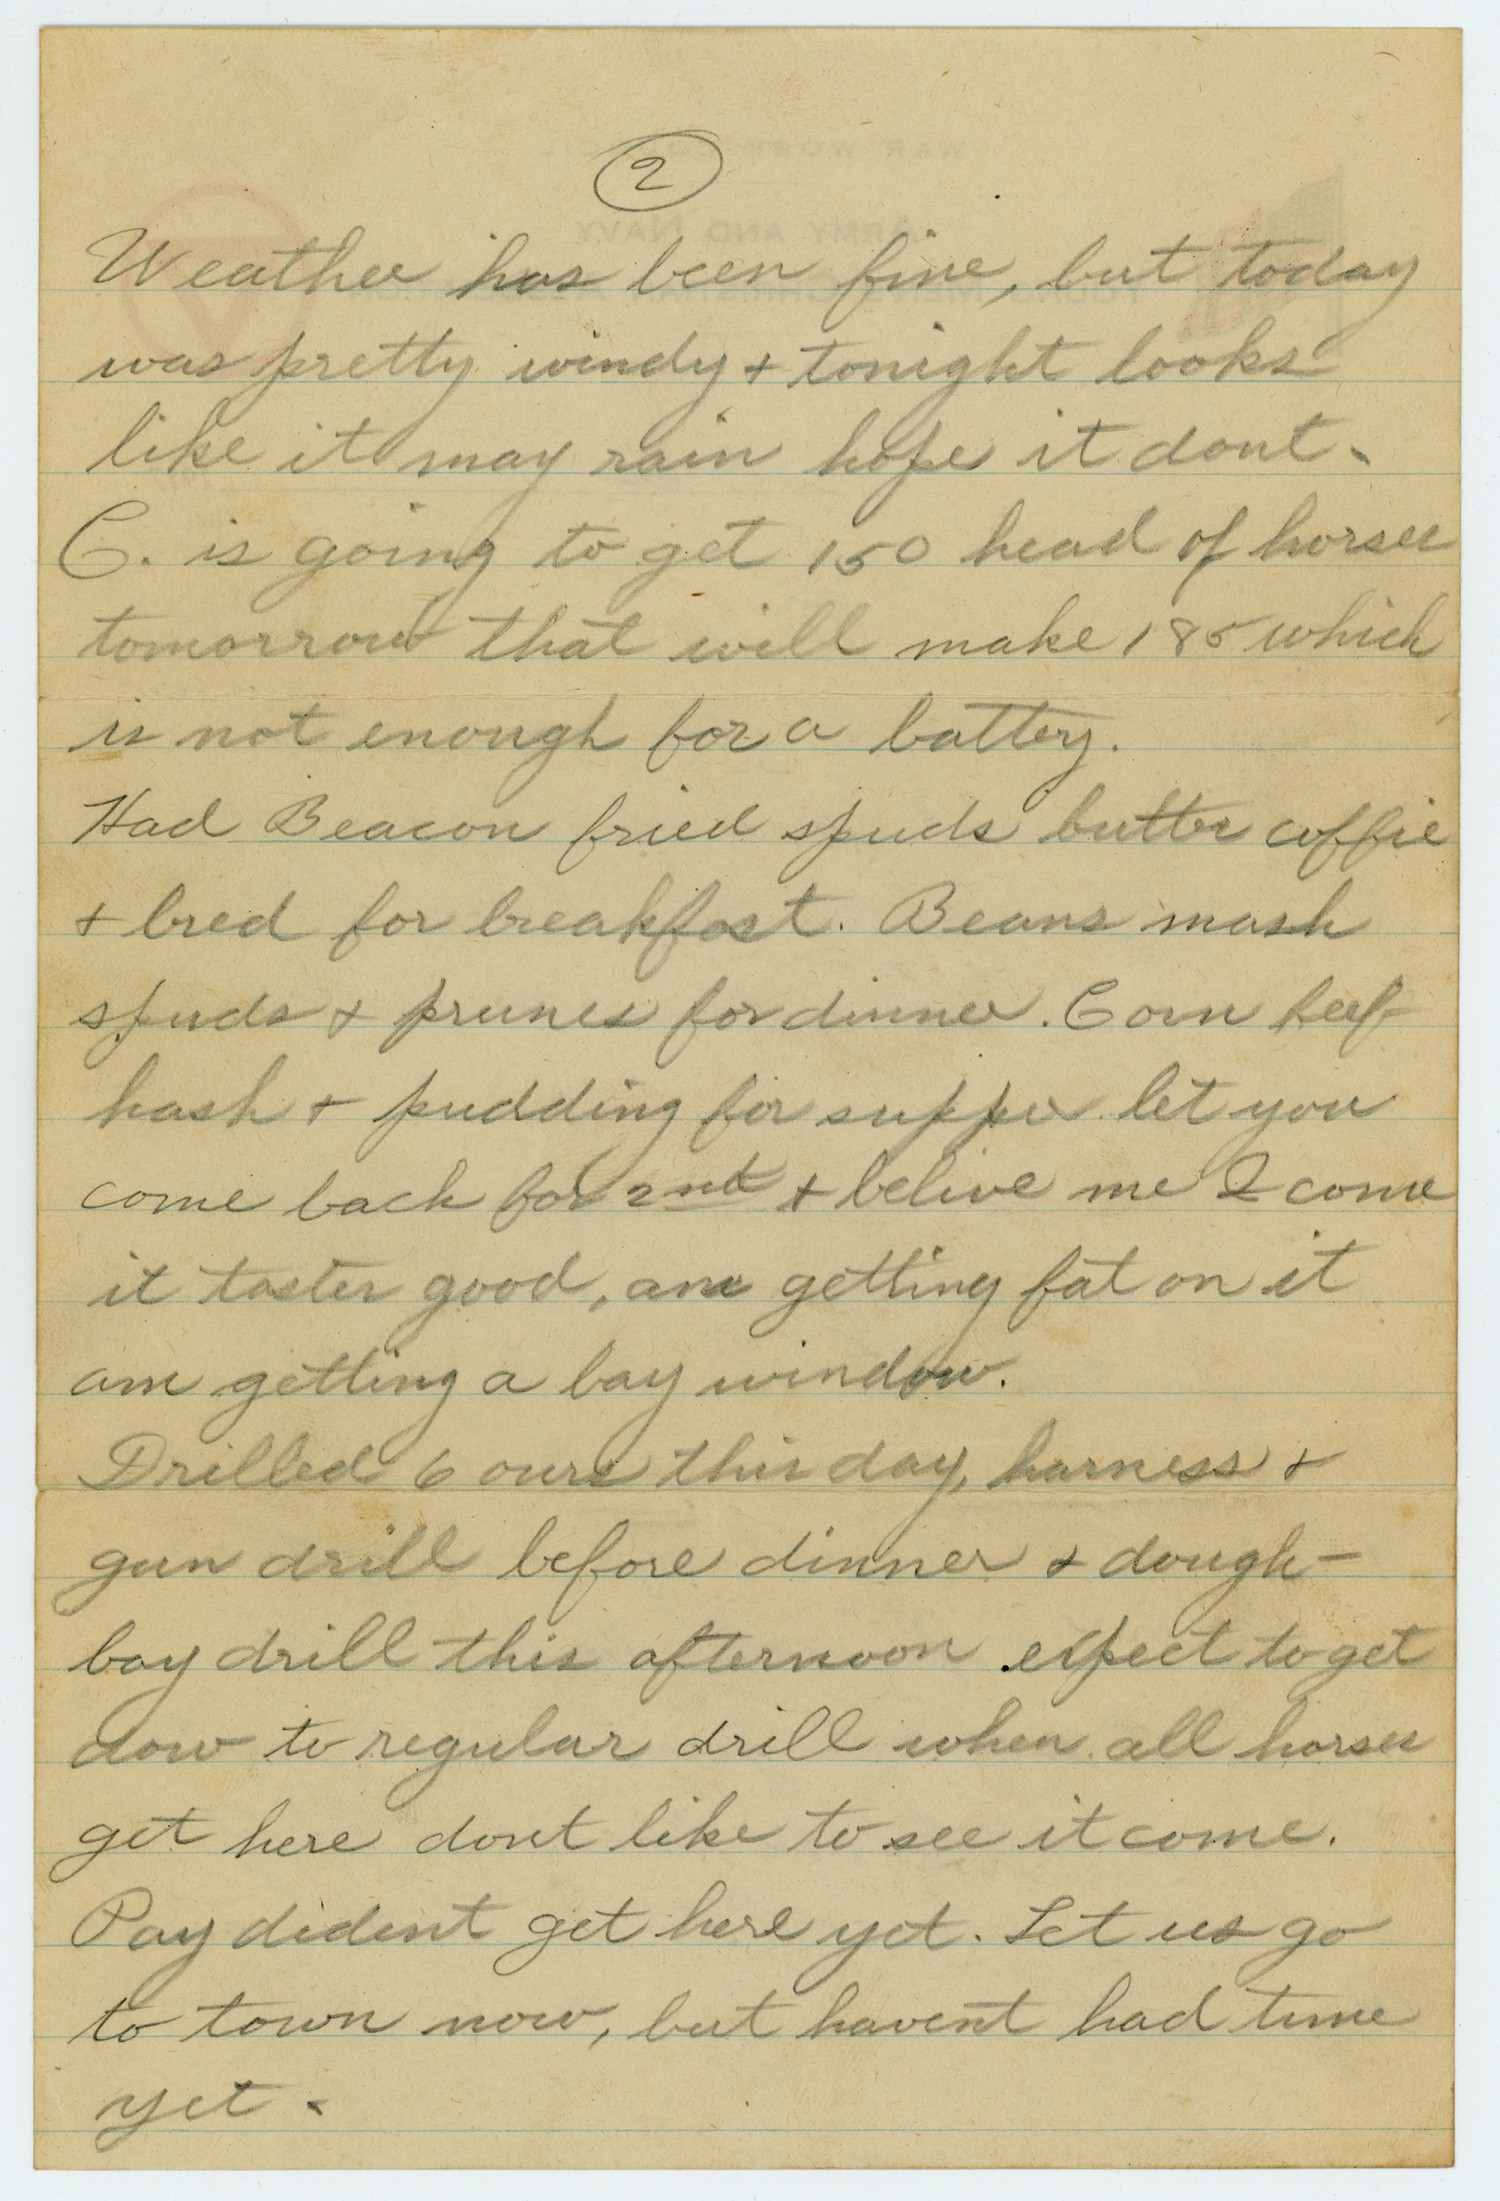 2
Weather has been fine, but today
was pretty windy + tonight looks
like it may rain hope it dont.
C. is going to get 150 head of horses
tomorrow that will make 185 which
is not enough for a battery.
Had Beacon fried spuds butter coffie
+ bred for breakfast. Beans mash
spuds + prunes for dinner. Corn beef
hash + pudding for supper let you
come back for 2nd + belive me I come
it tastes good, am getting fat on it
am getting a bay window.
Drilled 6 ours this day, harness +
gun drill before dinner + dough-
boy drill this afternoon expect to get
dow to regular drill when all horses
get here dont like to see it come.
Pay dident get here yet. Let us go
to town now, but havent had time
yet.